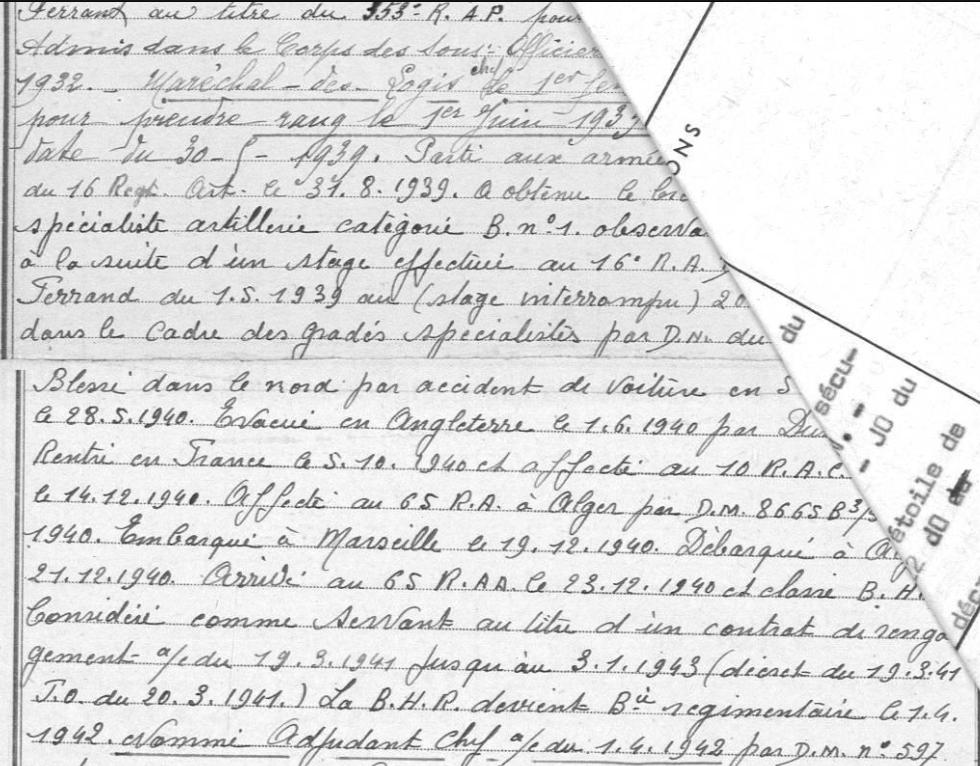 Ferrand au titre du 353e R.A.P. pour
Admis dans le Corps des Sous-Officier
1932. - Maréchal-des-Logis chef le 1er
pour prendre rang le 1er Juin 193
date du 30-5-1939. Parti aux armée
du 16 Regt. Art. le 31.8.1939. A obtenu le
spécialiste artillerie catégorie B. n°1. observa
à la suite d'un stage effectué au 16e R.A.
Ferrand du 1.5.1939 au (stage interrompu) 20
dans le cadre des gradés spécialistes par D.M. du
Blessé dans le nord par accident de voiture en S
le 28.5.1940. Evacué en Angleterre le 1.6.1940 par Du
Rentré en France le 5.10.1940 et affecté au 10 R.A.C.
le 14.12.1940. Affecté au 65 R.A. à Alger par D.M. 8665 B3/
1940. Embarqué à Marseille le 19.12.1940. Débarqué à
21.12.1940. Arrivé au 65 R.AA. le 23.12.1940 et classé B.H.
Considéré comme servant au titre d'un contrat de renga
gement a/c du 19.3.1941 jusqu'au 3.1.1943 (décret du 19.3.41
J.O. du 20.3.1941.) La B.H.R. devient Bie régimentaire le 1.4.
1942. Nommé Adjudant Chef a/c du 1.4.1942 par D.M. n° 597
ONS
du
sécu-
- JO du
étoile de
dO
déc